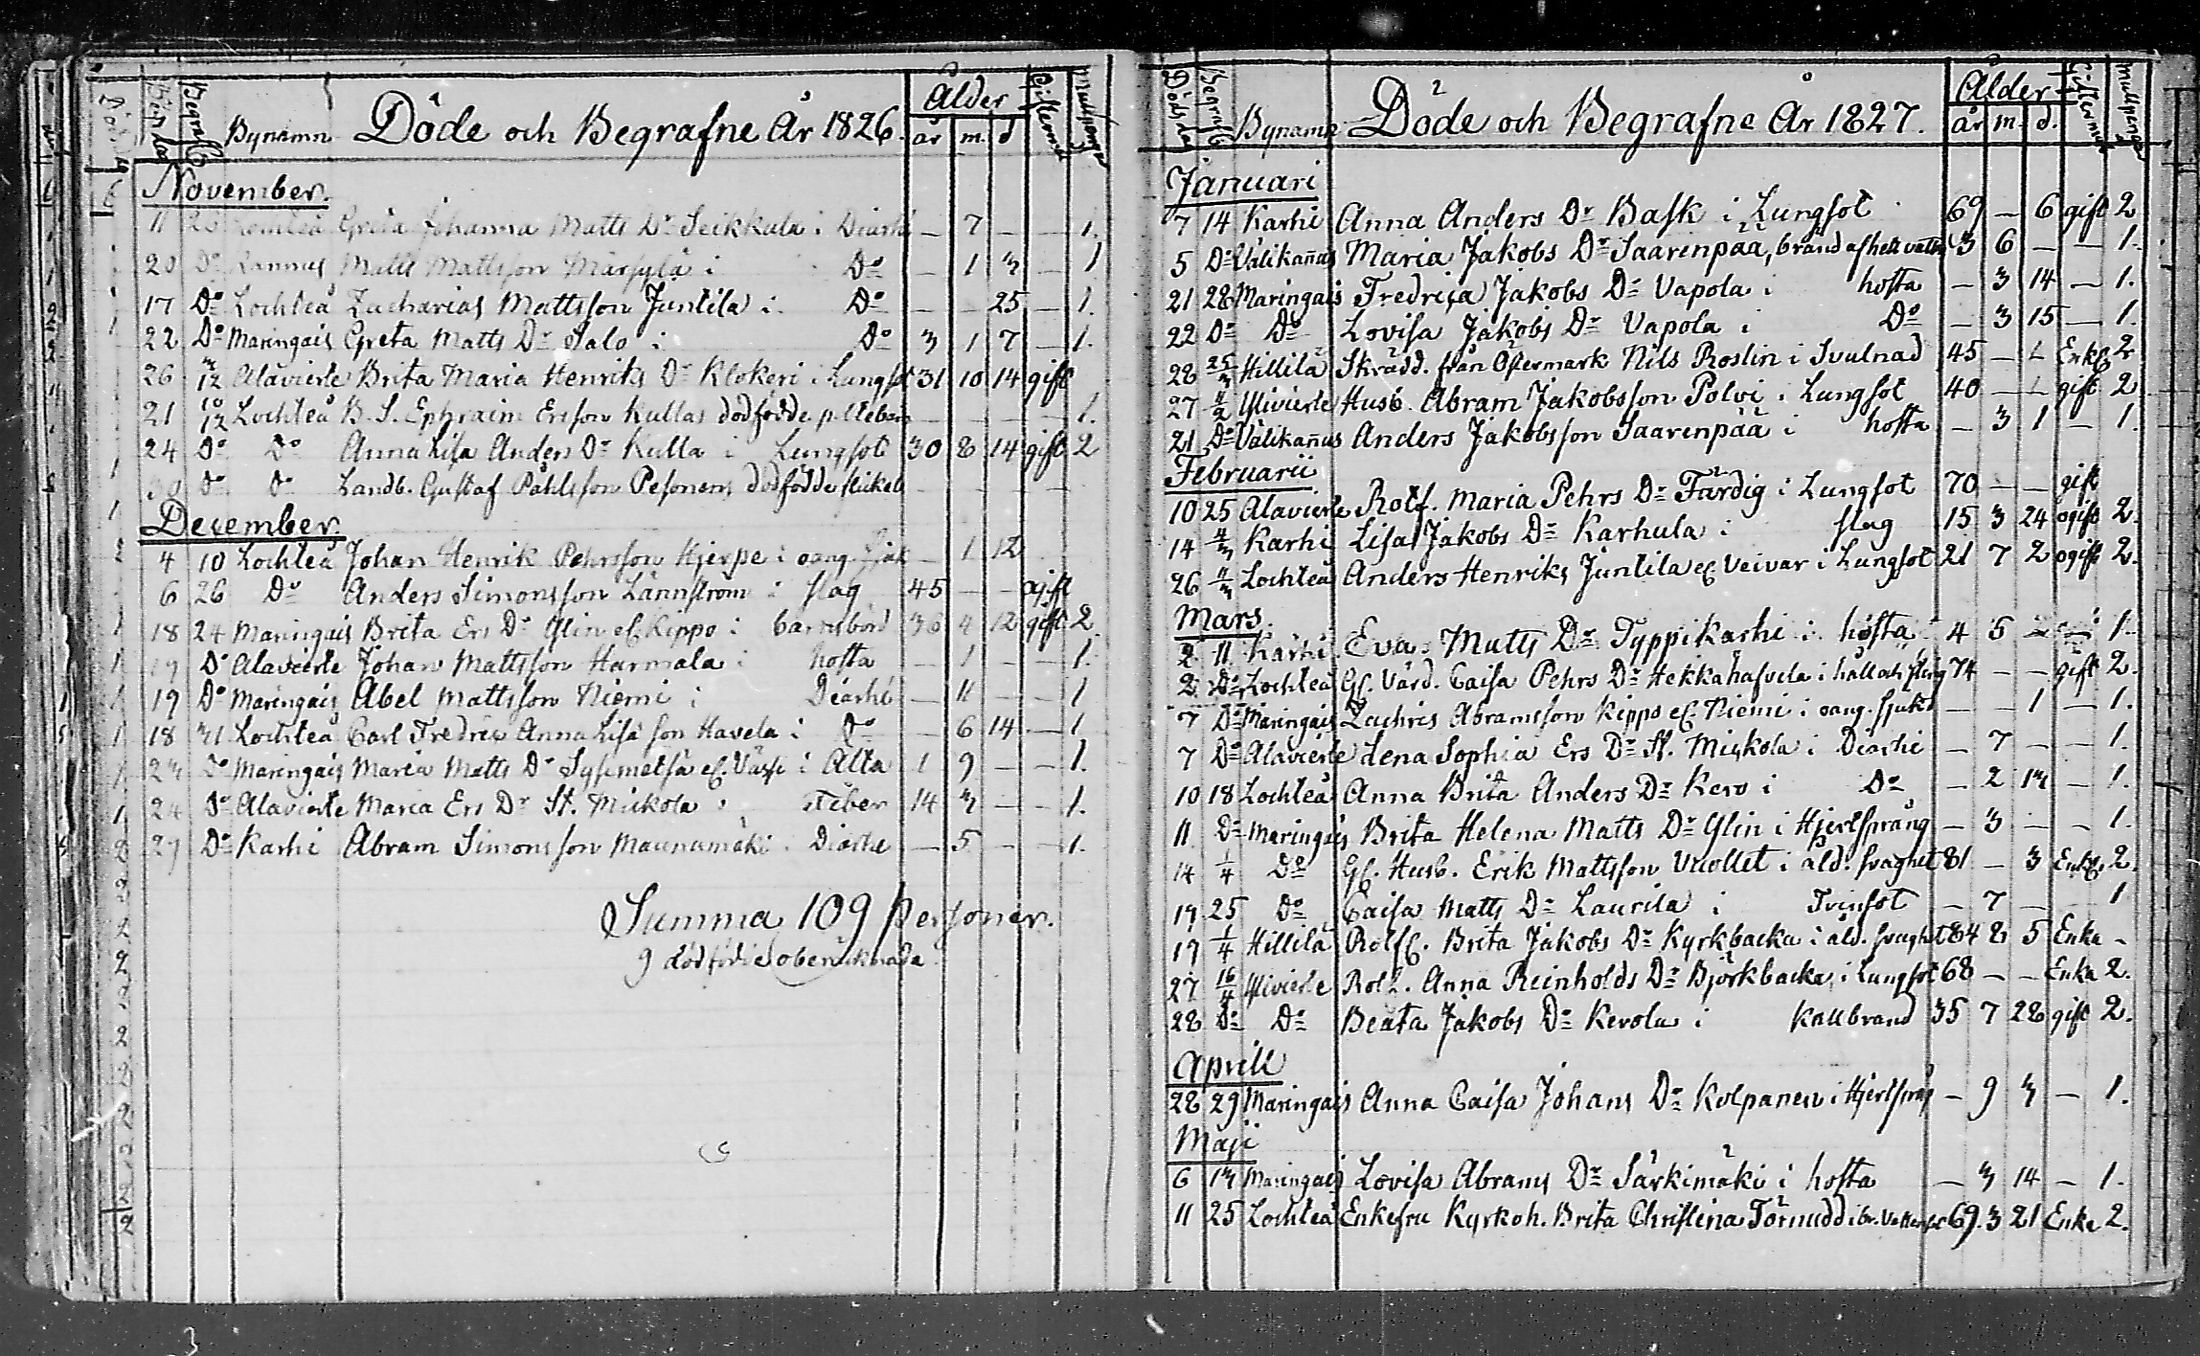 Dödsdag Begrafn. Bynamn Döde och Begrafne År 1826. Ålder år m. d. Giftermål Mullpengar
November.
11 26 Lochteå Greta Johanna Matts Dr Seikkala i Diarhé — 7 — — 1.
20 Do Kannus Matts Mattsson Märsylä i Do — 1 3 — 1
17 Do Lochteå Zacharias Mattsson Juntila i Do — — 25 — 1.
22 Do Maringais Greta Matts Dr Salo i Do 3 1 7 — 1.
26 3/12 Alavierle Brita Maria Henriks Dr Klokeri i Lungsot 31 10 14 gift
21 10/12 Lochteå B. S. Ephraim Ersson Kullas dödfödde — — — — 1.
24 Do Do Anna Lisa Anders Dr Kulla i Lungsot 30 8 14 gift 2
30 Do Do Landb. Gustaf Påhlsson Pesonens dödfödde flickeb — — — —
December.
4 10 Lochteå Johan Henrik Pehrsson Hjerpe i oang. Sjuk — 1 12
6 26 Do Anders Simonsson Lännström i slag 45 — — ogift
18 24 Maringais Brita Ers Dr Ylin el. Kippo i barnsbörd 36 4 12 gift 2
19 Do Alavierle Johan Mattsson Harmala i hosta — 1 — — 1.
19 Do Maringais Abel Mattsson Niemi i Diarhé — 11 — — 1
18 31 Lochteå Carl Fredric Anna Lisä son Havela i Do — 6 14 — 1
23 Do Maringais Maria Matts Dr Sysimetsä el. i Alta 1 9 — — 1.
24 Do Alavierle Maria Ers Dr St. Miskola i feber 14 3 — — 1.
29 Do Karhi Abram Simonsson Maunumäki i Diarhe — 5 — — 1.
Summa 109 Personer.
9 dödfödde oberäknade
Dödsdag Begrafn. Bynamn Döde och Begrafne År 1827. Ålder år m. d. Giftermål Mullpengar
Januari
7 14 Karhi Anna Anders Dr Bask i Lungsot 69 — 6 gift 2
5 Do Välikañus Maria Jakobs Dr Saarenpää, bränd af hett vatten 3 6 — — 1.
21 28 Maringais Fredrica Jakobs Dr Vapola i hosta — 3 14 — 1.
22 Do Do Lovisa Jakobs Dr Vapola i Do — 3 15 — 1.
28 25/3 Hillilä Skrädd. från Östermark Nils Roslin i Svulnad 45 — — Enkl. 2
27 11/2 Ylivierle Husb. Abram Jakobsson Polvi i Lungsot 40 — — gift 2
21 Do Välikañus Anders Jakobsson Saarenpää i hosta — 3 1 — 1.
Februarii
10 25 Alavierle Rotf. Maria Pehrs Dr Färdig i Lungsot 70 — — gift
14 4/3 Karhi Lisa Jakobs Dr Karhula i slag 15 3 24 ogift 2.
26 11/3 Lochteå Anders Henriks Juntila el. Veivar i Lungsot 21 7 2 ogift 2.
Mars.
2 11 Karhi Eva Matts Dr Typpikarhi i hosta 4 5 — — 1.
2 Do Lochteå Gl. Värd. Caisa Pehrs Dr Hekkahafvela i håll och sting 74 — — gift 2.
7 Do Maringais Zachris Abramsson Kippo el. Niemi i oang. sjukd — — 1 — 1.
7 Do Alavierle Lena Sophia Ers Dr St. Miskola i Diarhé — 7 — — 1.
10 18 Lochteå Anna Brita Anders Dr Kero i Do — 2 13 — 1.
11 Do Maringais Brita Helena Matts Dr Ylin i Hjertsprång — 3 — — 1.
14 1/4 Do Gl. Husb. Erik Mattsson Vuollet i åld. svaghet 81 — 3 Enkl. 2.
19 25 Do Caisa Matts Dr Laurila i Tvinsot — 7 — — 1
17 1/4 Hillilä Rotf. Brita Jakobs Dr Kyrkbacka i åld. svaght 84 8 5 Enka –
27 16/4 Ylivierle Roth. Anna Reinholds Dr Björkbacka i Lungsot 68 — — Enka 2.
28 Do Do Beata Jakobs Dr Kerola i Kallbrand 35 7 28 gift 2.
Aprill
28 29 Maringais Anna Caisa Johans Dr Kolpanen i Hjertspr. — 9 3 — 1.
Maji
6 13 Maringais Lovisa Abrams Dr Särkimäki i hosta — 3 14 — 1.
11 25 Lochteå Enkefru Kyrkoh. Brita Christina Törnudd i br. Vattusot 69. 3 21 Enka 2.